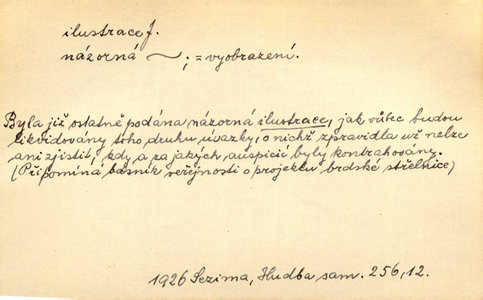 ilustrace f.
názorná ~ ; = vyobrazení.
Byla již ostatně podána názorná ilustrace, jak vůbec budou
likvidovány toho druhu úvazky, o nichž zpravidla už nelze
ani zjistit, kdy a za jakých auspicií byly kontrahovány.
(Připomíná básník veřejnosti o projektu brdské střelnice)
1926 Sezima, Hudba sam. 256, 12.